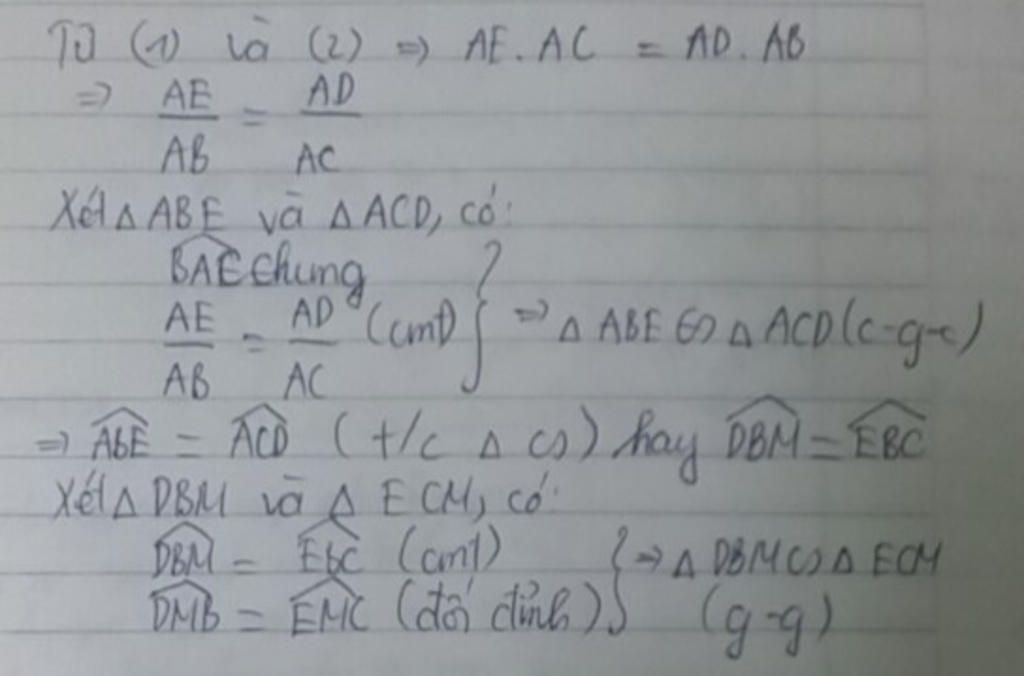 Từ (1) và (2) => AE. AC = AD. AB
=> AE/AB = AD/AC
Xét △ ABE và △ ACD, có:
BAE chung
AE/AB = AD/AC (cmt) } => △ ABE ∽ △ ACD (c-g-c)
=> AbE = ACD (t/c △ ∽) hay DBM = EBC
Xét △ DBM và △ ECM, có:
DBM = EbC (cmt) } => △ DBM ∽ △ ECM
DMB = EMC (đối đỉnh) (g-g)